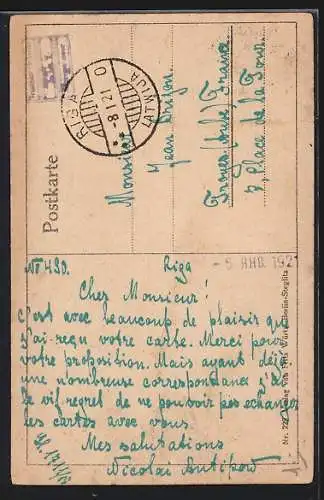 Postkarte
RIGA
-8 1 21
LATWIJA
Monsieur
Jean
Troyes (Aube) France
Place de la Tour
№ 490. Riga - 5 ЯНВ. 192
Cher Monsieur!
C'est avec beaucoup de plaisir que
j'ai reçu votre carte. Merci pour
votre proposition. Mais ayant déjà
une nombreuse correspondance j'ai
le vif regret de ne pouvoir pas echanger
les cartes avec vous.
Mes salutations
Nicolai